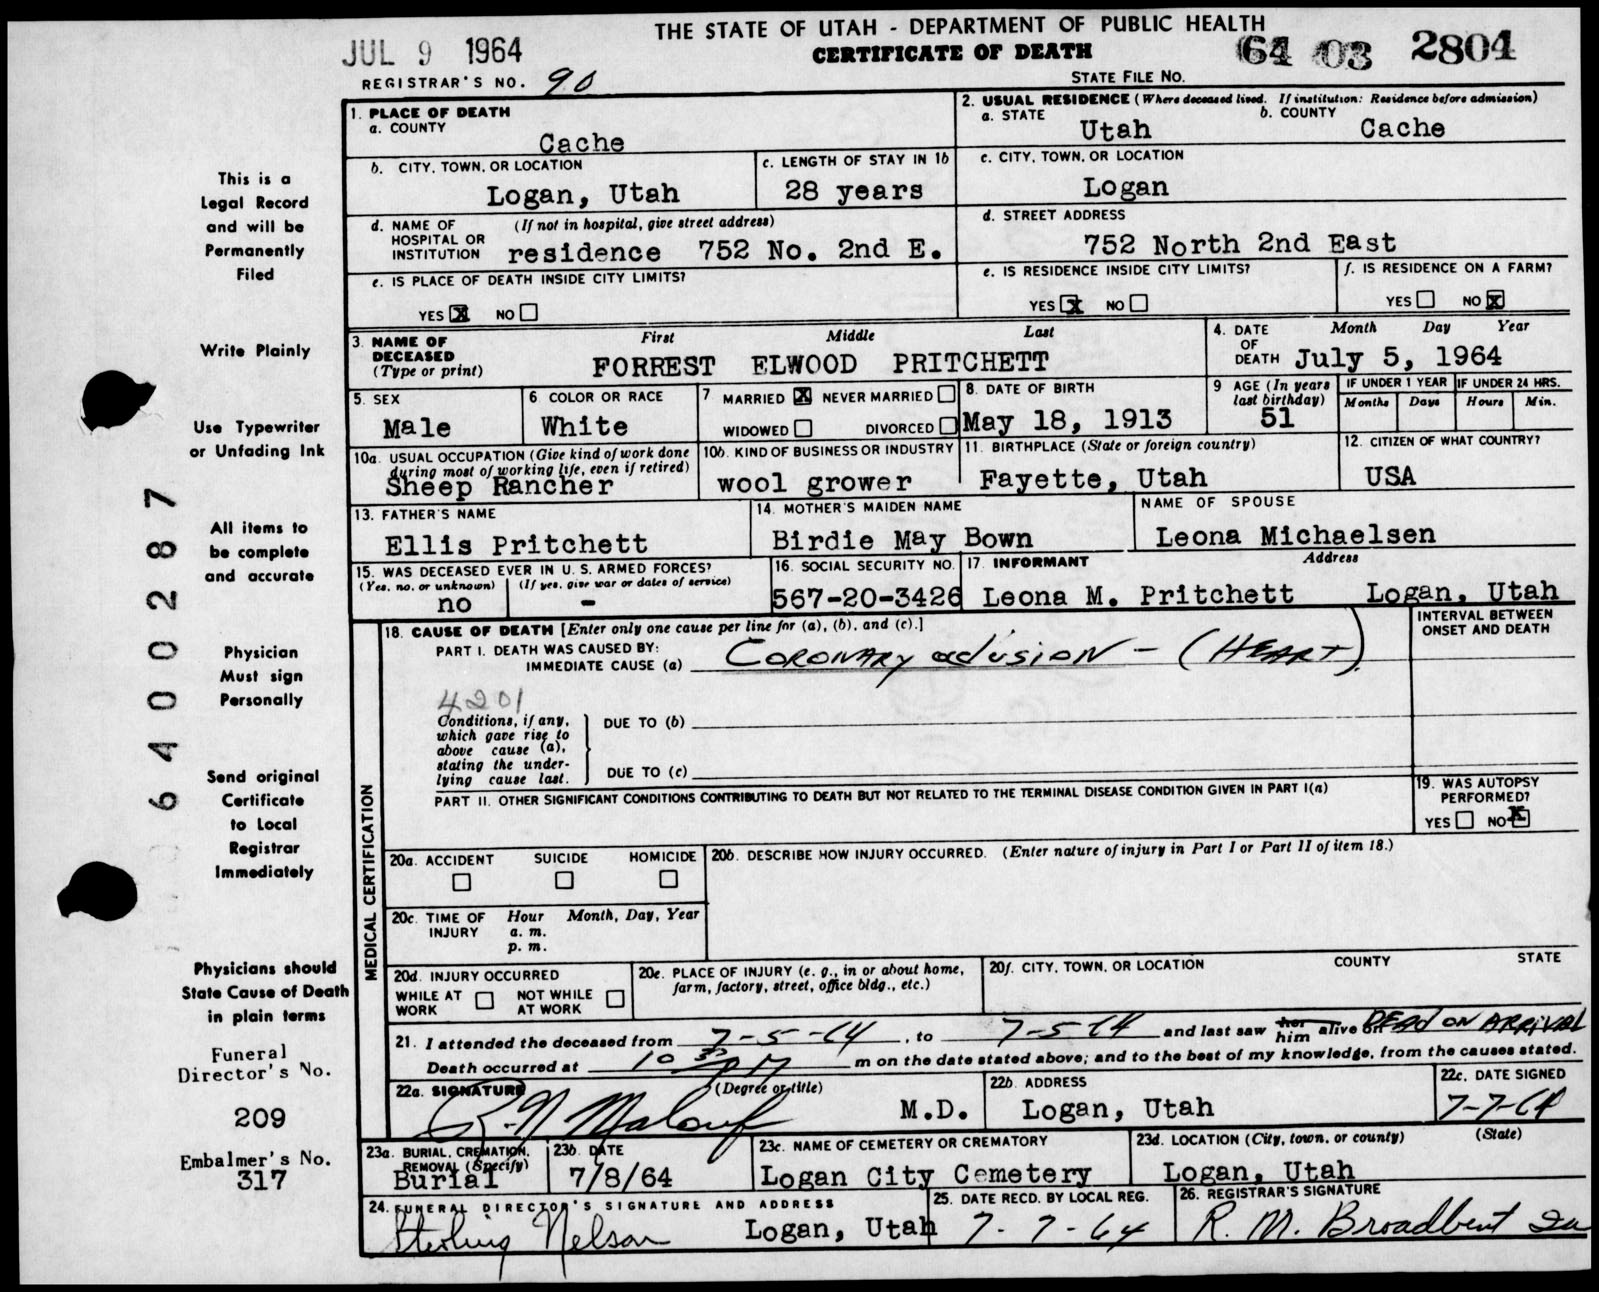 THE STATE OF UTAH - DEPARTMENT OF PUBLIC HEALTH
JUL 9 1964
CERTIFICATE OF DEATH
64 03 2804
REGISTRAR'S NO. 90
STATE FILE NO.
1. PLACE OF DEATH
a. COUNTY
Cache
2. USUAL RESIDENCE (Where deceased lived. If institution: Residence before admission)
a. STATE
Utah
b. COUNTY
Cache
b. CITY, TOWN, OR LOCATION
Logan, Utah
c. LENGTH OF STAY IN 1b
28 years
c. CITY, TOWN, OR LOCATION
Logan
d. NAME OF HOSPITAL OR INSTITUTION
(If not in hospital, give street address)
residence 752 No. 2nd E.
d. STREET ADDRESS
752 North 2nd East
e. IS PLACE OF DEATH INSIDE CITY LIMITS?
YES X NO
e. IS RESIDENCE INSIDE CITY LIMITS?
YES X NO
f. IS RESIDENCE ON A FARM?
YES NO X
3. NAME OF DECEASED (Type or print)
First Middle Last
FORREST ELWOOD PRITCHETT
4. DATE OF DEATH
Month Day Year
July 5, 1964
5. SEX
Male
6 COLOR OR RACE
White
7 MARRIED X NEVER MARRIED
WIDOWED DIVORCED
8. DATE OF BIRTH
May 18, 1913
9 AGE (In years last birthday)
51
IF UNDER 1 YEAR
Months Days
IF UNDER 24 HRS.
Hours Min.
10a. USUAL OCCUPATION (Give kind of work done during most of working life, even if retired)
Sheep Rancher
10b. KIND OF BUSINESS OR INDUSTRY
wool grower
11. BIRTHPLACE (State or foreign country)
Fayette, Utah
12. CITIZEN OF WHAT COUNTRY?
USA
13. FATHER'S NAME
Ellis Pritchett
14. MOTHER'S MAIDEN NAME
Birdie May Bown
NAME OF SPOUSE
Leona Michaelsen
15. WAS DECEASED EVER IN U. S. ARMED FORCES?
(Yes, no, or unknown) (If yes, give war or dates of service)
no -
16. SOCIAL SECURITY NO.
567-20-3426
17. INFORMANT Address
Leona M. Pritchett Logan, Utah
MEDICAL CERTIFICATION
18. CAUSE OF DEATH [Enter only one cause per line for (a), (b), and (c).]
INTERVAL BETWEEN ONSET AND DEATH
PART I. DEATH WAS CAUSED BY:
IMMEDIATE CAUSE (a) CORONARY occlusion - (HEART).
4201
Conditions, if any, which gave rise to above cause (a), stating the underlying cause last.
DUE TO (b)
DUE TO (c)
PART II. OTHER SIGNIFICANT CONDITIONS CONTRIBUTING TO DEATH BUT NOT RELATED TO THE TERMINAL DISEASE CONDITION GIVEN IN PART I(a)
19. WAS AUTOPSY PERFORMED?
YES NO X
20a. ACCIDENT SUICIDE HOMICIDE
20b. DESCRIBE HOW INJURY OCCURRED. (Enter nature of injury in Part I or Part II of item 18.)
20c. TIME OF INJURY
Hour Month, Day, Year
a. m.
p. m.
20d. INJURY OCCURRED
WHILE AT WORK NOT WHILE AT WORK
20e. PLACE OF INJURY (e. g., in or about home, farm, factory, street, office bldg., etc.)
20f. CITY, TOWN, OR LOCATION COUNTY STATE
21. I attended the deceased from 7-5-64, to 7-5 64 and last saw her him alive on DEAD ON ARRIVAL
Death occurred at 10 30 PM m on the date stated above; and to the best of my knowledge, from the causes stated.
22a. SIGNATURE (Degree or title)
R.N. Malouf M.D.
22b. ADDRESS
Logan, Utah
22c. DATE SIGNED
7-7-64
23a. BURIAL, CREMATION, REMOVAL (Specify)
Burial
23b. DATE
7/8/64
23c. NAME OF CEMETERY OR CREMATORY
Logan City Cemetery
23d. LOCATION (City, town, or county) (State)
Logan, Utah
24. FUNERAL DIRECTOR'S SIGNATURE AND ADDRESS
Sterling Nelson Logan, Utah
25. DATE RECD. BY LOCAL REG.
7-7-64
26. REGISTRAR'S SIGNATURE
R. M. Broadbent
This is a
Legal Record
and will be
Permanently
Filed
Write Plainly
Use Typewriter
or Unfading Ink
All items to
be complete
and accurate
Physician
Must sign
Personally
Send original
Certificate
to Local
Registrar
Immediately
Physicians should
State Cause of Death
in plain terms
Funeral
Director's No.
209
Embalmer's No.
317
64000287